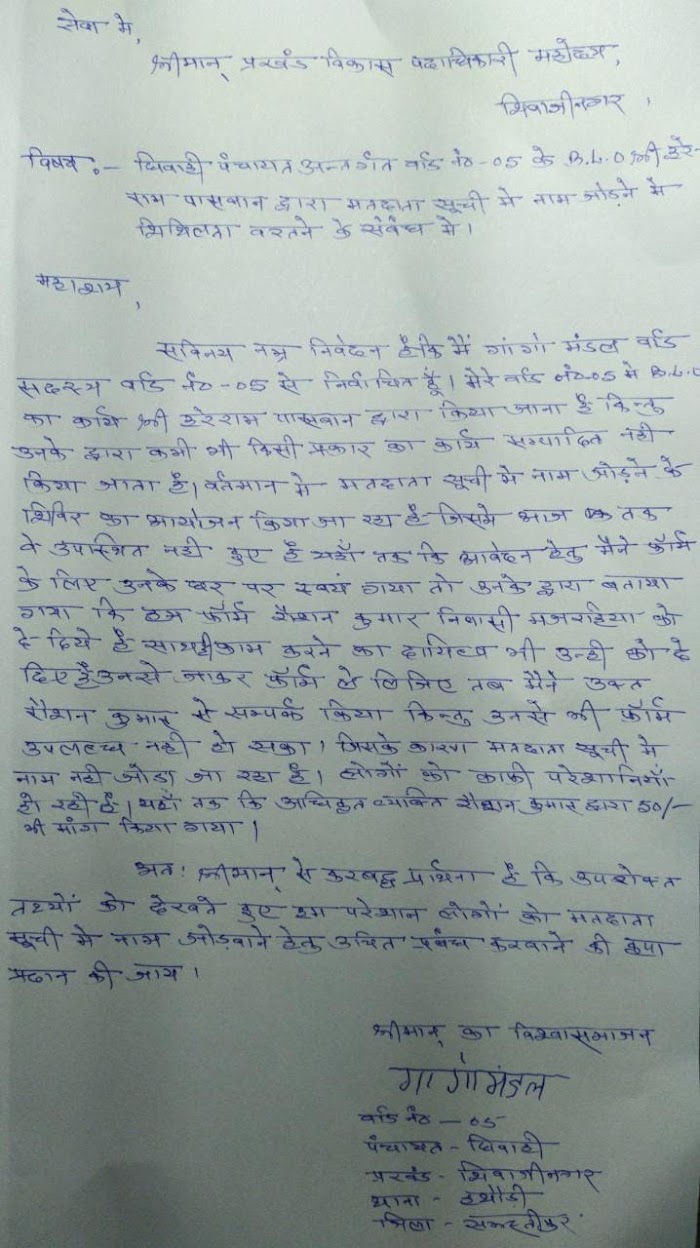 सेवा मे,
श्रीमान् प्रखंड विकास पदाधिकारी महोदय,
शिवाजीनगर,
विषय :- धिवाही पंचायत अन्तर्गत वार्ड नं०-05 के B.L.O श्री हरे-
राम पासवान द्वारा मतदाता सूची मे नाम जोड़ने मे
शिथिलता वरतने के संबंध मे।
महाशय,
सविनय नम्र निवेदन है कि मैं गांगो मंडल वार्ड
सदस्य वार्ड नं०-05 से निर्वाचित हूँ। मेरे वार्ड नं०-05 मे B.L.O
का कार्य श्री हरेराम पासवान द्वारा किया जाना है किन्तु
उनके द्वारा कभी भी किसी प्रकार का कार्य सम्पादित नही
किया जाता है। वर्तमान मे मतदाता सूची मे नाम जोड़ने के
शिविर का आयोजन किया जा रहा है जिसमे आज तक
वे उपस्थित नही हुए है यहाँ तक कि आवेदन हेतु मैने फॉर्म
के लिए उनके घर पर स्वयं गया तो उनके द्वारा बताया
गया कि हम फॉर्म रौशन कुमार निवासी मजरहिया को
दे दिये है साथ ही काम करने का दायित्व भी उन्ही को दे
दिए है उनसे जाकर फॉर्म ले लिजिए तब मैने उक्त
रौशन कुमार से सम्पर्क किया किन्तु उनसे भी फॉर्म
उपलब्ध नही हो सका। जिसके कारण मतदाता सूची मे
नाम नही जोड़ा जा रहा है। लोगों को काफी परेशानियाँ
हो रही है। यहाँ तक कि अधिकृत व्यक्ति रौशन कुमार द्वारा 50/-
भी मांग किया गया।
अतः श्रीमान् से करबद्ध प्रार्थना है कि उपरोक्त
तथ्यों को देखते हुए हम परेशान लोगों को मतदाता
सूची मे नाम जोड़वाने हेतु उचित प्रबंध करवाने की कृपा
प्रदान की जाय।
श्रीमान् का विश्वासभाजन
गांगो मंडल
वार्ड नं० - 05
पंचायत - धिवाही
प्रखंड - शिवाजीनगर
थाना - हथौड़ी
जिला - समस्तीपुर